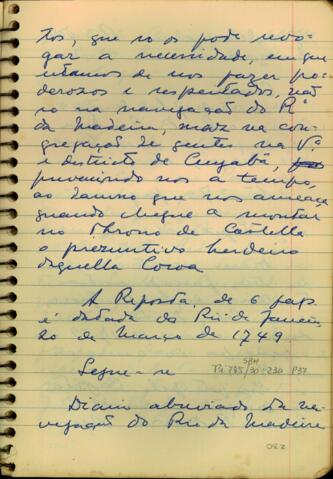 tos, que só os pode revo-
gar a necessidade, em que
estamos de nos fazer po-
derozos e respeitados, não
só na navegação do Rº
da Madeira, mas na con-
gregação de gentes na Vª
e districto de Cuyabâ,
prevenindo nos a tempo,
ao damno que nos ameaça
quando chegue a montar
no throno de Castella
o prezuntivo herdeiro
daquella Coroa
A Reposta, de 6 pags
é datada do Rio de Janeiro
20 de Março de 1749
Segue-se
Diario abreviado da na-
vegação do Rio da Madeira